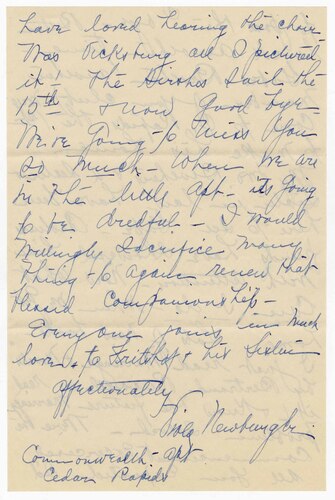 have loved hearing the choir
Was Vicksburg all I pictured
it! The Hirshes sail the
15th & now good bye-
We're going to miss you
so much - When we are
in the little apt - it's going
to be dredful - I would
willingly sacrifice many
thing - to again renew that
blessed Companionship -
Everyone joins in much
love - to Frithof & his Sister
affectionately
Viola Newburgh
Commonwealth - apt
Cedar Rapids